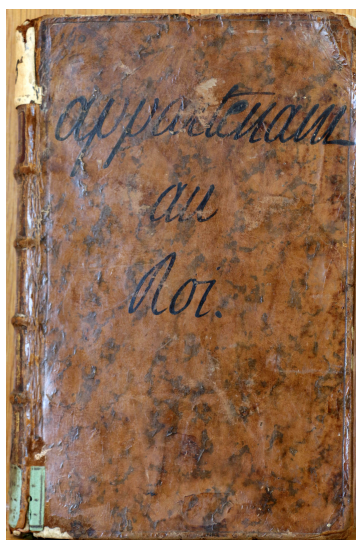 appartenant
au
Roi.